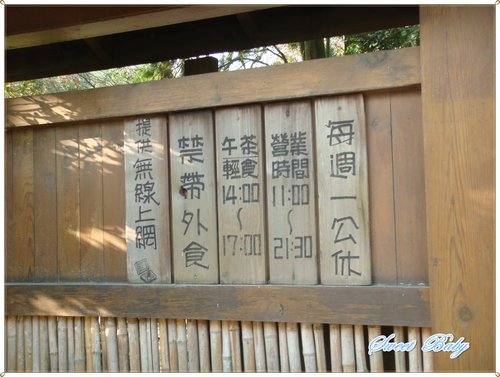 每週一公休
營業時間
11:00
～
21:30
午茶輕食
14:00
～
17:00
禁帶外食
提供無線上網
Sweet Baby